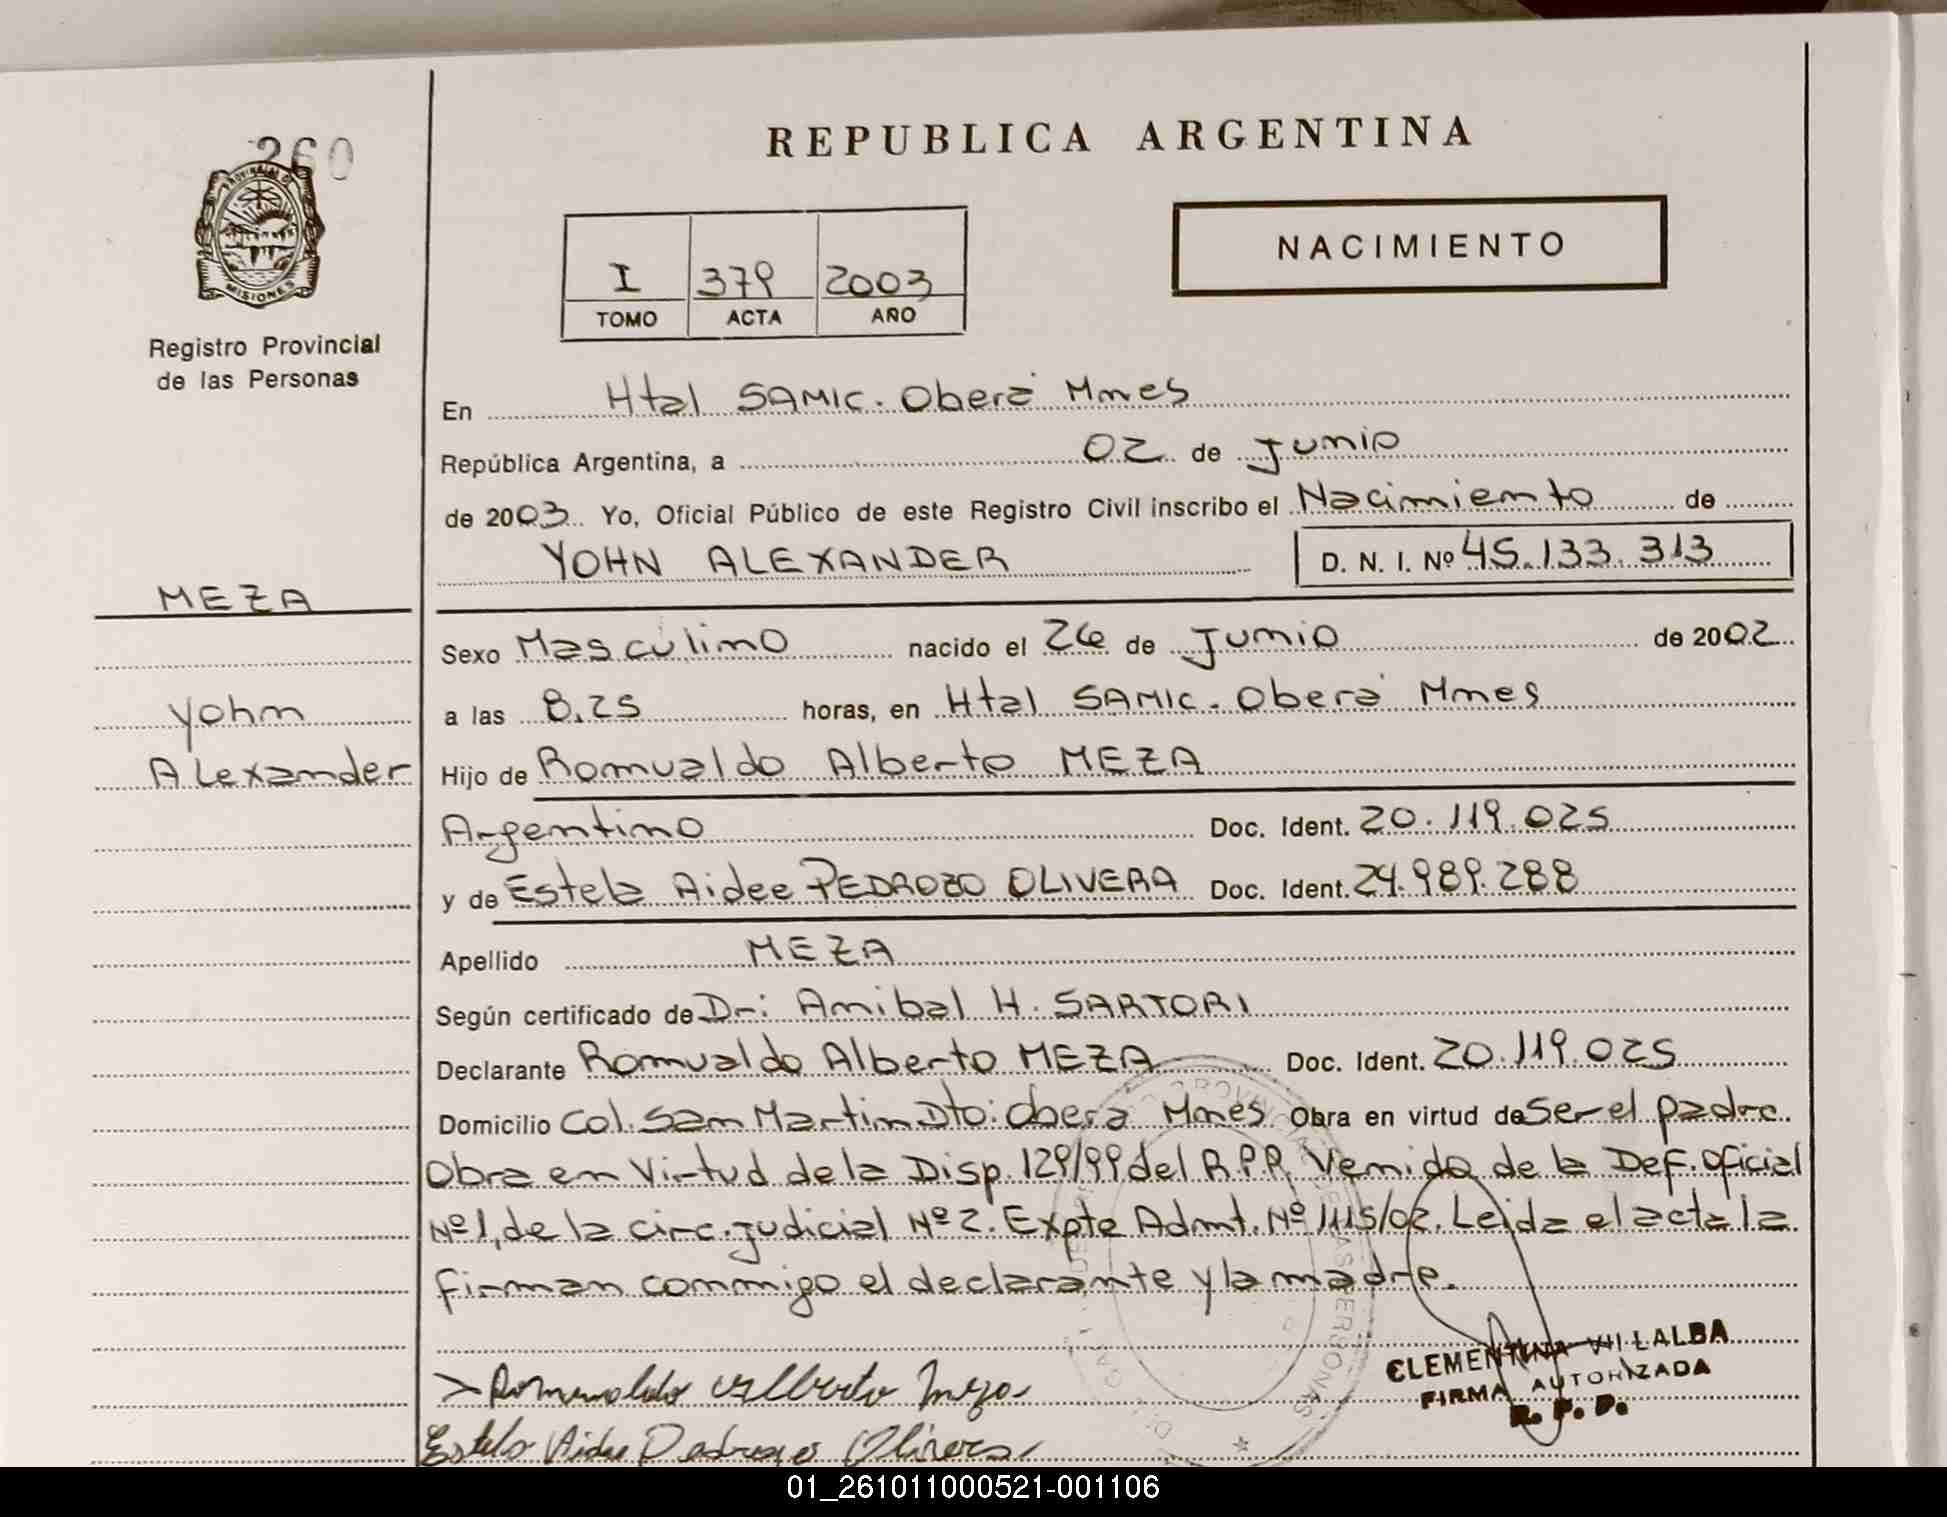 260
PROVINCIA DE
MISIONES
Registro Provincial
de las Personas
MEZA
Yohn
Alexander
REPUBLICA ARGENTINA
I 379 2003
TOMO ACTA AÑO
NACIMIENTO
En Htal SAMIC. Oberá Mnes
República Argentina, a 02 de Junio
de 2003 Yo, Oficial Público de este Registro Civil inscribo el Nacimiento de
YOHN ALEXANDER D. N. I. Nº 45.133.313
Sexo Masculino nacido el 26 de Junio de 2002
a las 8,25 horas, en Htal SAMIC. Oberá Mnes
Hijo de Romualdo Alberto MEZA
Argentino Doc. Ident. 20.119.025
y de Estela Aidee PEDROZO OLIVERA Doc. Ident. 24.989.288
Apellido MEZA
Según certificado de Dr: Anibal H. SARTORI
Declarante Romualdo Alberto MEZA Doc. Ident. 20.119.025
Domicilio Col. San Martin Dto: Obera Mnes Obra en virtud de Ser el padre
Obra en Virtud de la Disp. 129/99 del R.P.P. Venida de la Def. Oficial
Nº1, de la circ. judicial Nº2. Expte Admt. Nº 1115/02. Leida el acta la
firman conmigo el declarante y la madre.
Romualdo Alberto Meza
Estela Aidee Pedrozo Olivera
CLEMENTINA VILLALBA
FIRMA AUTORIZADA
R. P. P.
01_261011000521-001106